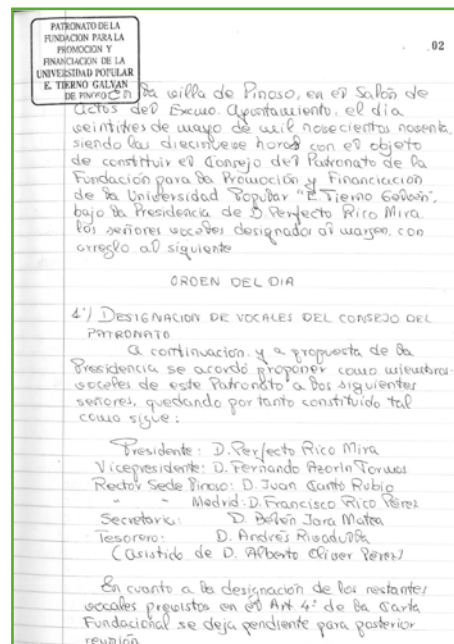 PATRONATO DE LA
FUNDACION PARA LA
PROMOCION Y
FINANCIACION DE LA
UNIVERSIDAD POPULAR
E. TIERNO GALVAN
DE PINOSO
02
En la villa de Pinoso, en el Salón de
Actos del Excmo. Ayuntamiento, el día
veintitres de mayo de mil novecientos noventa,
siendo las diecinueve horas con el objeto
de constituir el Consejo del Patronato de la
Fundación para la Promoción y Financiación
de la Universidad Popular "E. Tierno Galván",
bajo la Presidencia de D. Perfecto Rico Mira
los señores vocales designados al margen, con
arreglo al siguiente
ORDEN DEL DIA
1º) DESIGNACION DE VOCALES DEL CONSEJO DEL
PATRONATO
A continuación, y a propuesta de la
Presidencia se acordó proponer como miembros-
vocales de este Patronato a los siguientes
señores, quedando por tanto constituido tal
como sigue:
Presidente: D. Perfecto Rico Mira
Vicepresidente: D. Fernando Azorín Tormos
Rector Sede Pinoso: D. Juan Cantó Rubio
" " Madrid: D. Francisco Rico Pérez
Secretaria: D. Belén Jara Matea
Tesorero: D. Andrés Rivadulla
(Asistido de D. Alberto Oliver Pérez)
En cuanto a la designación de los restantes
vocales previstos en el Art. 4º de la Carta
Fundacional se deja pendiente para posterior
reunión.